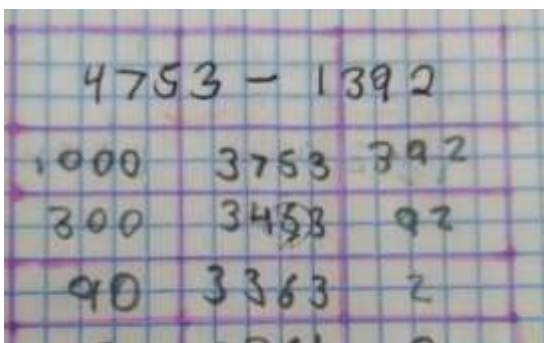 4753 - 1392
1000 3753 392
300 3453 92
90 3363 2